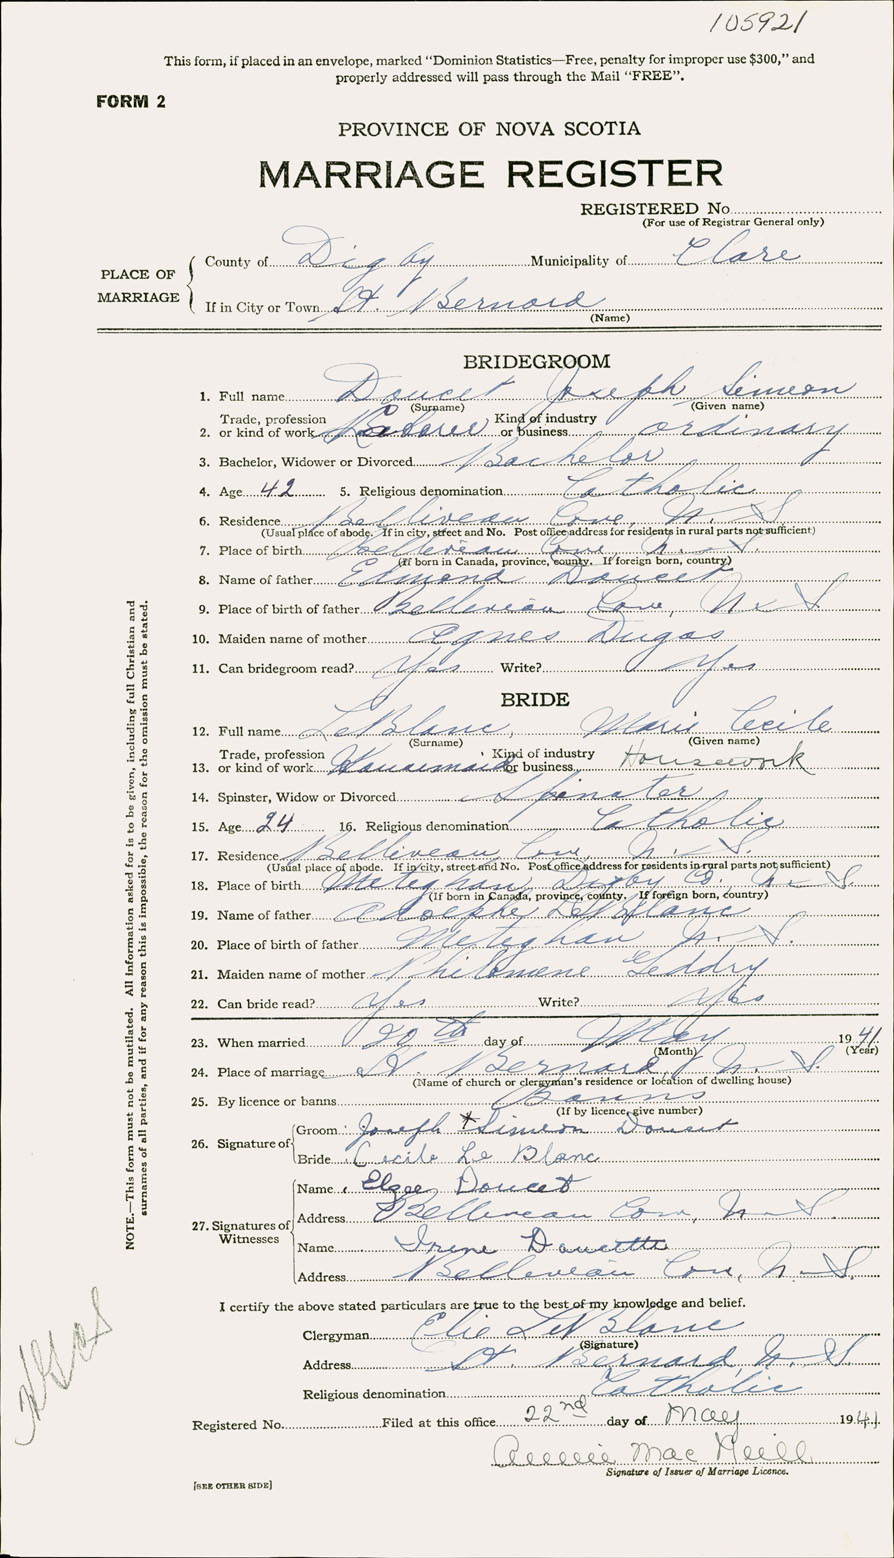 105921
This form, if placed in an envelope, marked "Dominion Statistics—Free, penalty for improper use $300," and
properly addressed will pass through the Mail "FREE".
FORM 2
PROVINCE OF NOVA SCOTIA
MARRIAGE REGISTER
REGISTERED No.
(For use of Registrar General only)
PLACE OF MARRIAGE
County of Digby Municipality of Clare
If in City or Town St. Bernard
(Name)
BRIDEGROOM
1. Full name Doucet Joseph Simeon
(Surname) (Given name)
2. Trade, profession or kind of work Laborer Kind of industry or business ordinary
3. Bachelor, Widower or Divorced Bachelor
4. Age 42 5. Religious denomination Catholic
6. Residence Belliveau Cove, N. S.
(Usual place of abode. If in city, street and No. Post office address for residents in rural parts not sufficient)
7. Place of birth Belleveau Cove, N. S.
(If born in Canada, province, county. If foreign born, country)
8. Name of father Edmond Doucet
9. Place of birth of father Belleveau Cove, N. S.
10. Maiden name of mother Agnes Dugas
11. Can bridegroom read? Yes Write? Yes
BRIDE
12. Full name LeBlanc, Marie Cecile
(Surname) (Given name)
13. Trade, profession or kind of work Housemaid Kind of industry or business Housework
14. Spinster, Widow or Divorced Spinster
15. Age 24 16. Religious denomination Catholic
17. Residence Belliveau Cove, N. S.
(Usual place of abode. If in city, street and No. Post office address for residents in rural parts not sufficient)
18. Place of birth Meteghan, Digby Co. N. S.
(If born in Canada, province, county. If foreign born, country)
19. Name of father Adolphe LeBlanc
20. Place of birth of father Meteghan N. S.
21. Maiden name of mother Philomene Geddry
22. Can bride read? Yes Write? Yes
23. When married 20th day of May 1941
(Month) (Year)
24. Place of marriage St. Bernard, N. S.
(Name of church or clergyman's residence or location of dwelling house)
25. By licence or banns Banns
(If by licence, give number)
26. Signature of
Groom Joseph Simeon Doucet
Bride Cecile Le Blanc
27. Signatures of Witnesses
Name Elzee Doucet
Address Belleveau Cove, N. S.
Name Irene Doucette
Address Belleveau Cove, N. S.
I certify the above stated particulars are true to the best of my knowledge and belief.
Clergyman Elie LeBlanc
(Signature)
Address St. Bernard, N. S.
Religious denomination Catholic
Registered No. Filed at this office 22nd day of May 1941
Mac Neill
Signature of Issuer of Marriage Licence.
[SEE OTHER SIDE]
NOTE.—This form must not be mutilated. All information asked for is to be given, including full Christian and
surnames of all parties, and if for any reason this is impossible, the reason for the omission must be stated.